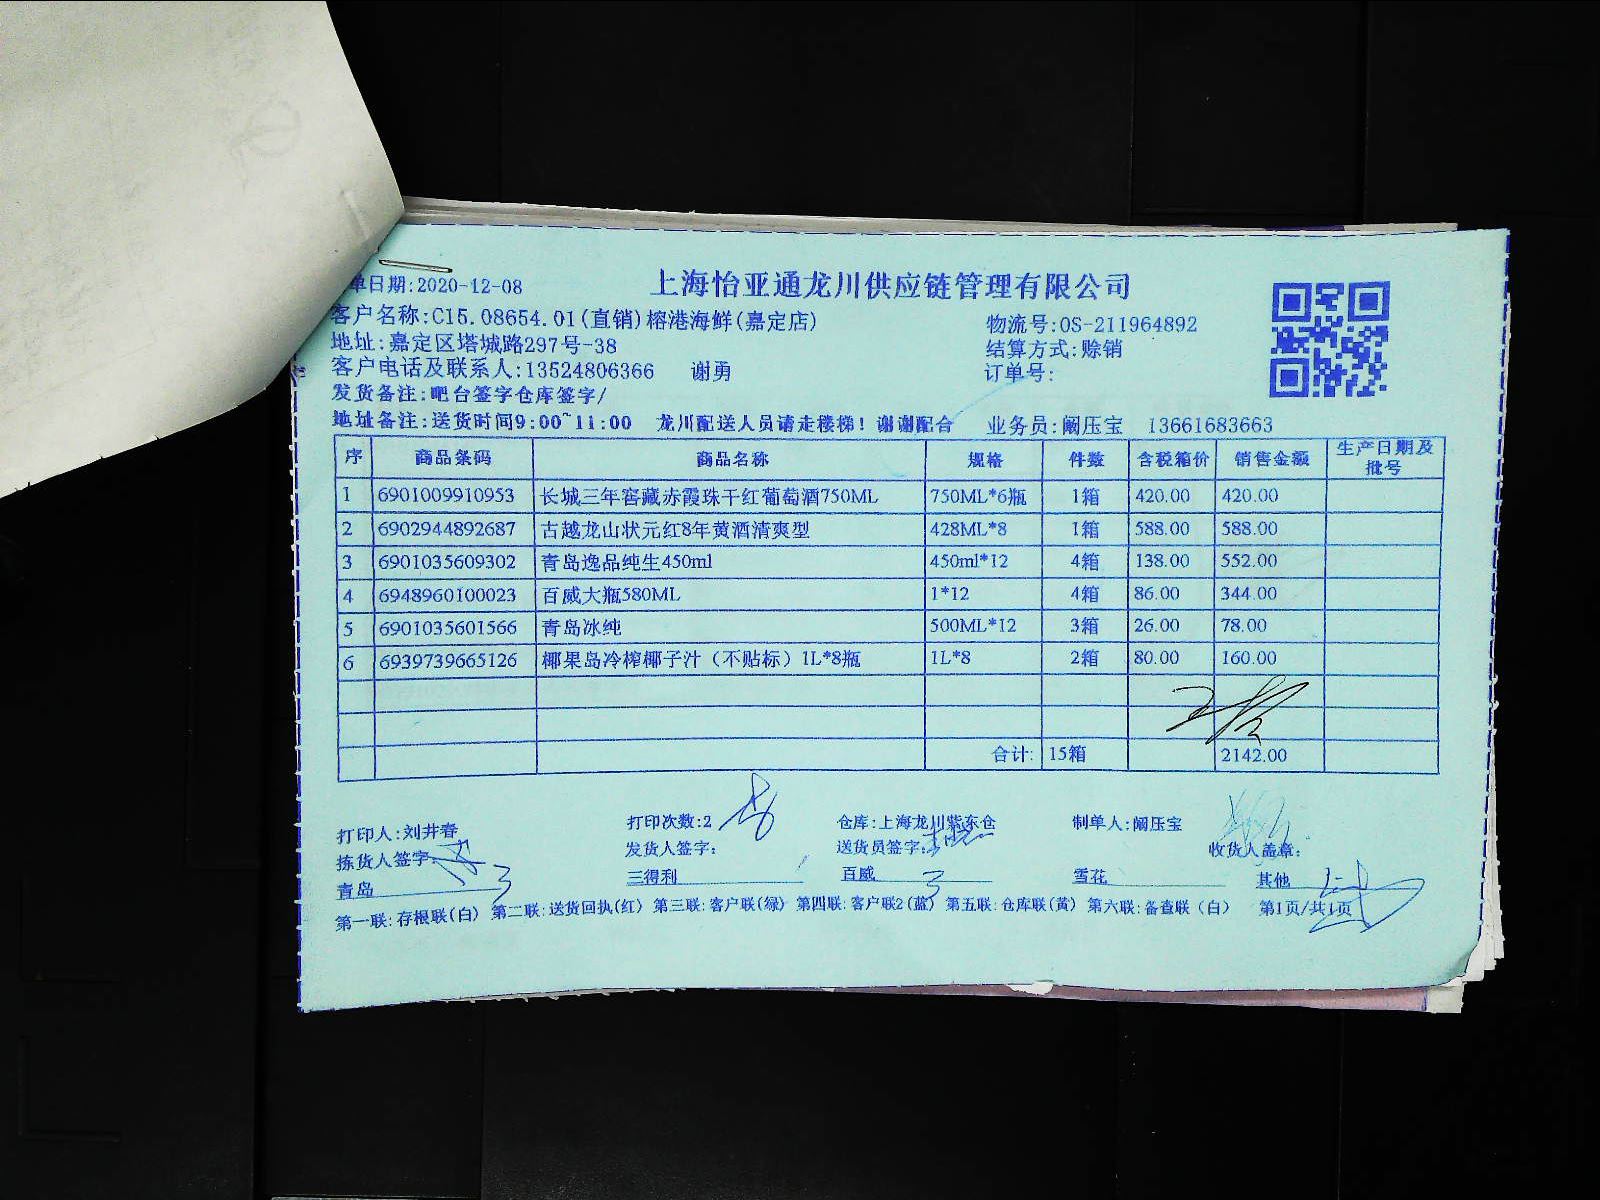 单日期:2020-12-08
上海怡亚通龙川供应链管理有限公司
客户名称:C15.08654.01(直销)榕港海鲜(嘉定店)
物流号:OS-211964892
地址:嘉定区塔城路297号-38
结算方式:赊销
客户电话及联系人:13524806366 谢勇
订单号:
发货备注:吧台签字仓库签字/
地址备注:送货时间9:00~11:00 龙川配送人员请走楼梯！谢谢配合 业务员:阚压宝 13661683663
序 商品条码 商品名称 规格 件数 含税箱价 销售金额 生产日期及批号
1 6901009910953 长城三年窖藏赤霞珠干红葡萄酒750ML 750ML*6瓶 1箱 420.00 420.00
2 6902944892687 古越龙山状元红8年黄酒清爽型 428ML*8 1箱 588.00 588.00
3 6901035609302 青岛逸品纯生450ml 450ml*12 4箱 138.00 552.00
4 6948960100023 百威大瓶580ML 1*12 4箱 86.00 344.00
5 6901035601566 青岛冰纯 500ML*12 3箱 26.00 78.00
6 6939739665126 椰果岛冷榨椰子汁（不贴标）1L*8瓶 1L*8 2箱 80.00 160.00
合计: 15箱 2142.00
打印人:刘井春 打印次数:2 仓库:上海龙川紫东仓 制单人:阚压宝
拣货人签字: 发货人签字: 送货员签字: 收货人盖章:
青岛 3 三得利 百威 3 雪花 其他
第一联:存根联(白) 第二联:送货回执(红) 第三联:客户联(绿) 第四联:客户联2(蓝) 第五联:仓库联(黄) 第六联:备查联（白） 第1页/共1页